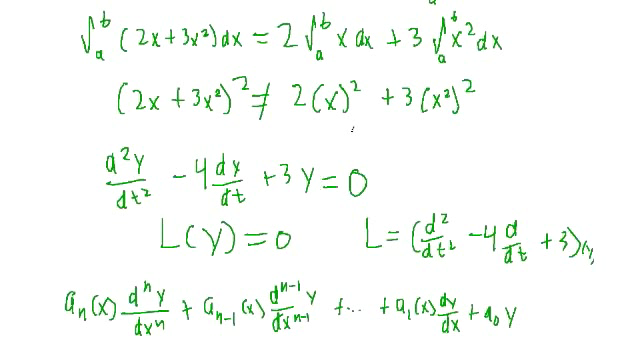 ∫_a^b (2x+3x²)dx = 2∫_a^b x dx + 3∫_a^b x² dx
(2x+3x²)² ≠ 2(x)² + 3(x²)²
d²y/dt² - 4 dy/dt + 3y = 0
L(y) = 0 L = (d²/dt² - 4 d/dt + 3)(y)
a_n(x) dⁿy/dxⁿ + a_{n-1}(x) dⁿ⁻¹y/dxⁿ⁻¹ + ... + a₁(x) dy/dx + a₀ y